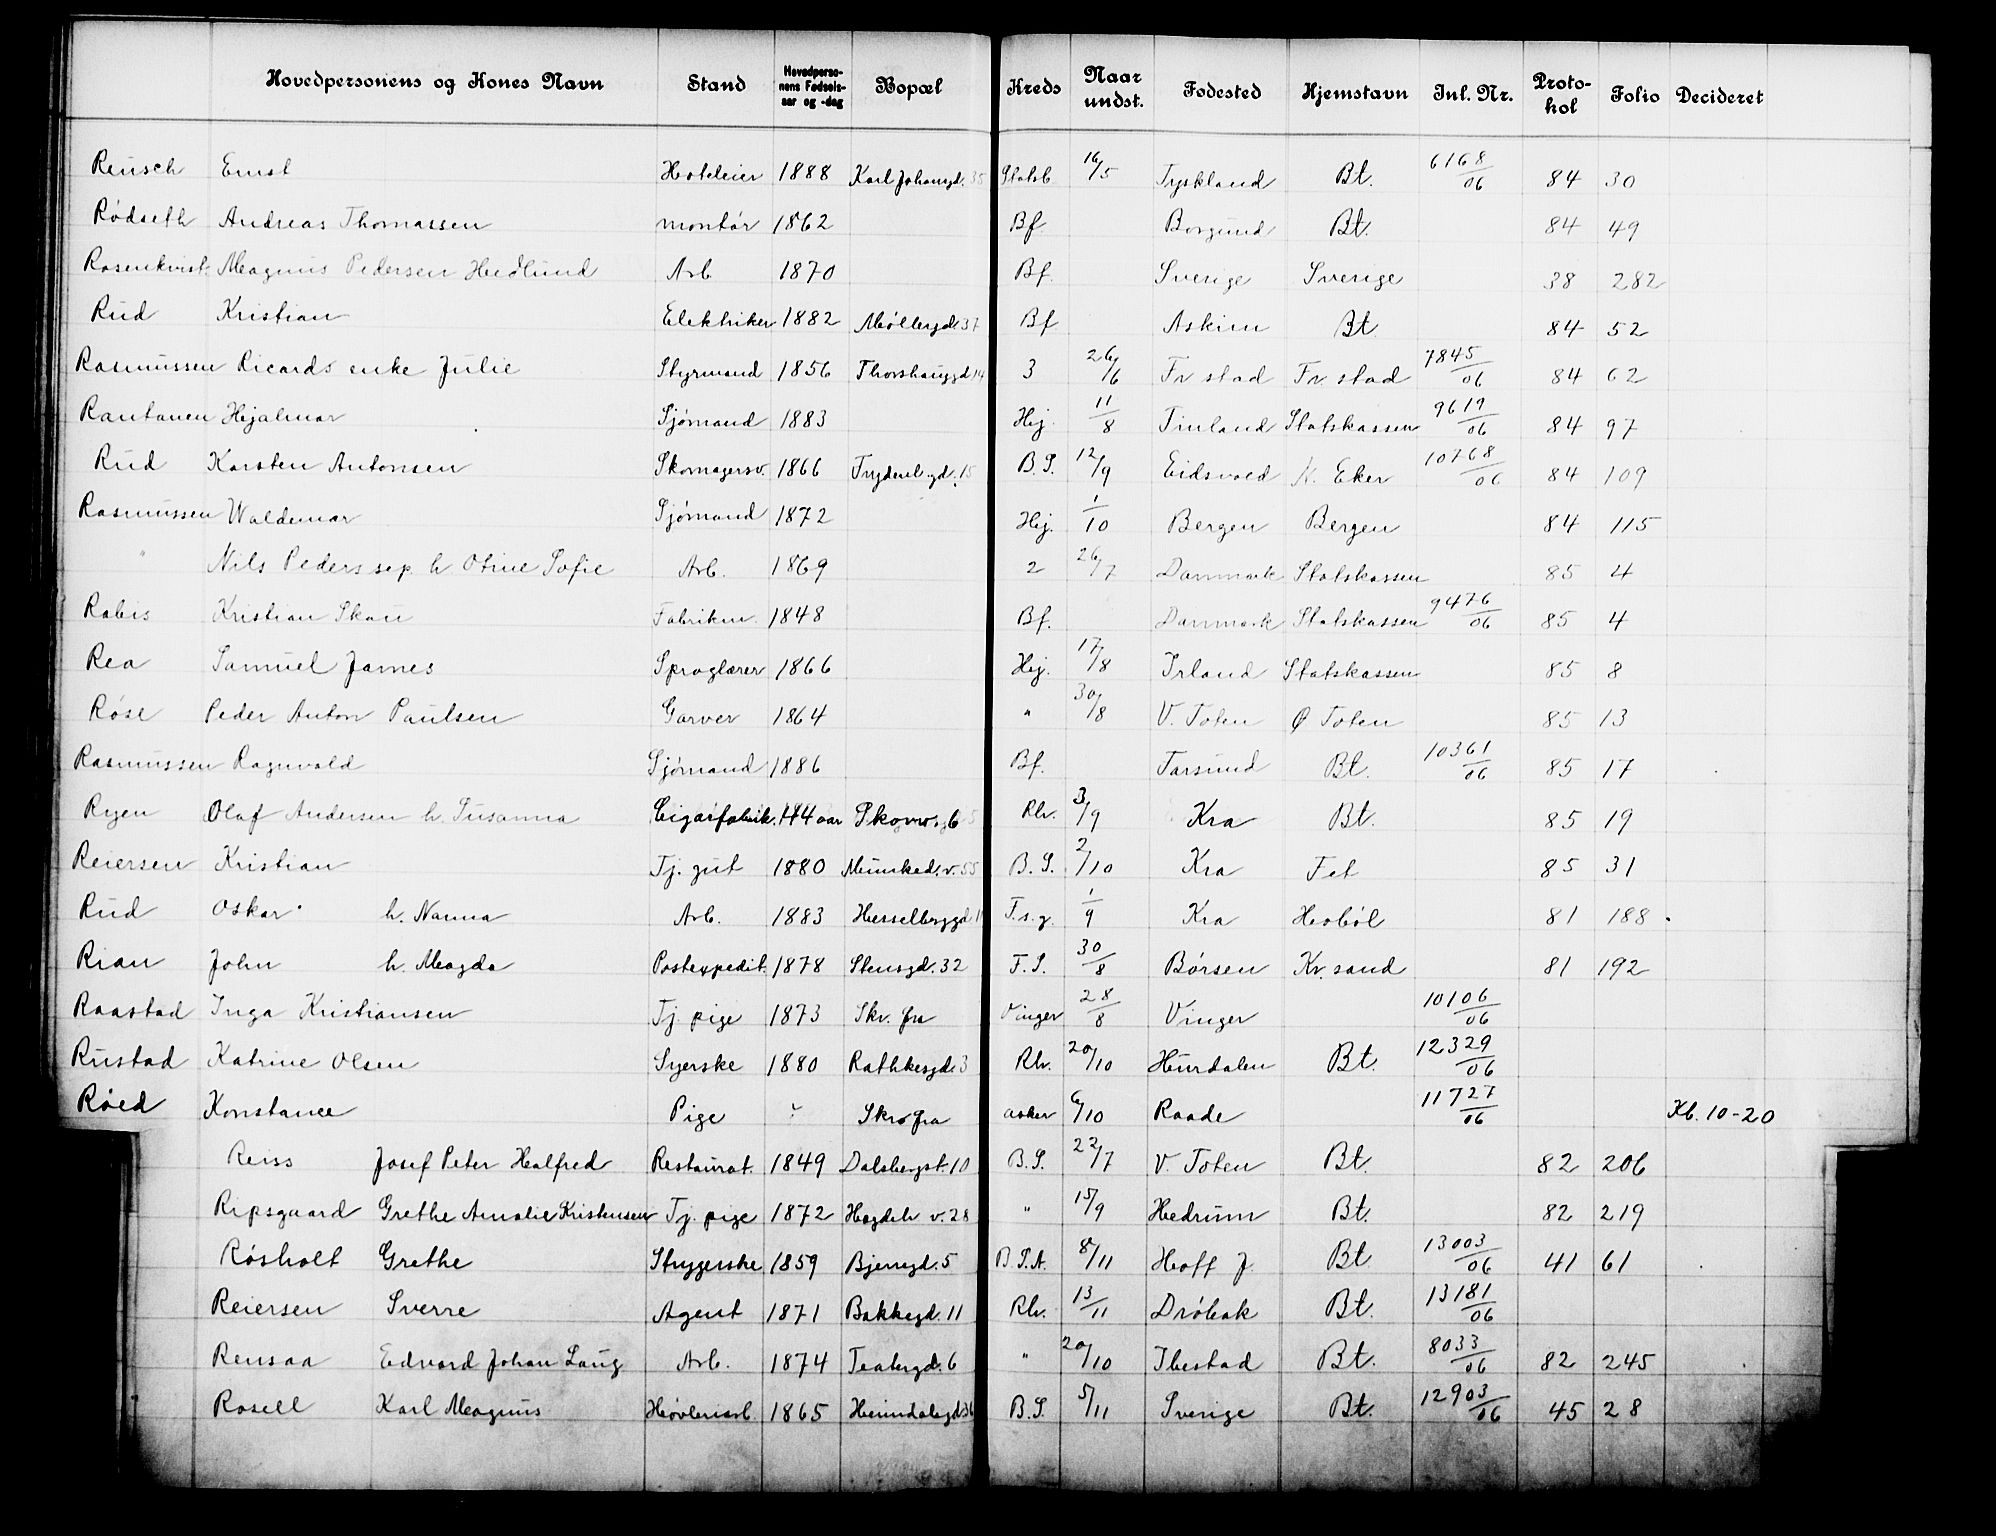 Hovedpersonens og Kones Navn Stand Hovedpersonens Fødselsaar og -dag Bopæl Kreds Naar undst. Fødested Hjemstavn Inl. Nr. Protokol Folio Decideret
Reusch Ernst Hoteleier 1888 Karl Johansgd. 35 Statsb. 16/5 Tyskland Bt. 6168/06 84 30
Rødseth Andreas Thomassen montør 1862 Bf. Borgund Bt. 84 49
Rosenkvist Magnus Pedersen Hedlund Arb. 1870 Bf. Sverige Sverige 38 282
Rud Kristian Elektriker 1882 Møllergd. 37 Bf Askim Bt. 84 52
Rasmussen Ricards enke Julie Styrmand 1856 Thorshauggd 14 3 26/6 Fr. stad Fr. stad 7845/06 84 62
Rantanen Hjalmar Sjømand 1883 Hj. 11/8 Finland Statskassen 9619/06 84 97
Rud Karsten Antonsen Skomagersv. 1866 Frydenlgd. 15 B.S. 12/9 Eidsvold N. Eker 10768/06 84 109
Rasmussen Waldemar Sjømand 1872 Hj. 1/10 Bergen Bergen 84 115
" Nils Peders sep. h. Otine Sofie Arb. 1869 2 26/7 Danmark Statskassen 85 4
Rabis Kristian Skau Fabrikm. 1848 Bf. Danmark Statskassen 9476/06 85 4
Rea Samuel James Sproglærer 1866 Hj. 17/8 Irland Statskassen 85 8
Røse Peder Anton Paulsen Garver 1864 " 30/8 V. Toten Ø Toten 85 13
Rasmussen Ragnvald Sjømand 1886 Bf. Farsund Bt. 10361/06 85 17
Ryen Olaf Andersen h. Susanna Cigarfabrik. 44 aar Skovv. 6 Rh. 3/9 Kra Bt. 85 19
Reiersen Kristian Tj. gut 1880 Munked. v. 55 B.S. 2/10 Kra Fet 85 31
Rud Oskar h. Nanna Arb. 1883 Hesselberggd. 11 F.s.g. 1/9 Kra Hobøl 81 188
Rian John h. Magda Postexpedit. 1878 Stensgd. 32 F.S. 30/8 Børsen Kr. sand 81 192
Raastad Inga Kristiansen Tj. pige 1873 Skr. fra Vinger 28/8 Vinger 10106/06
Rustad Katrine Olsen Syerske 1880 Rathkesgd. 3 Rh. 20/10 Hurdalen Bt. 12329/06
Røed Konstance Pige Skr. fra asker 6/10 Raade 11727/06 Kb. 10-20
Reiss Josef Peter Halfred Restaurat. 1849 Dalsbergst. 10 B.S. 22/7 V. Toten Bt. 82 206
Ripsgaard Grethe Amalie Kristensen Tj. pige 1872 Hegdeh v. 28 " 15/9 Hedrum Bt. 82 219
Røsholt Grethe Strygerske 1859 Bjerregd. 5 B.S.A. 8/11 Hoff J. Bt 13003/06 41 61
Reiersen Sverre Agent 1871 Bakkegd. 11 Rh. 13/11 Drøbak Bt. 13181/06
Rensaa Edvard Johan Laug Arb. 1874 Teatergd. 6 " 20/10 Ibestad Bt. 8033/06 82 245
Rosell Karl Magnus Høvleriarb. 1865 Heimdalsgd 36 B.S. 5/11 Sverige Bt. 12903/06 45 28